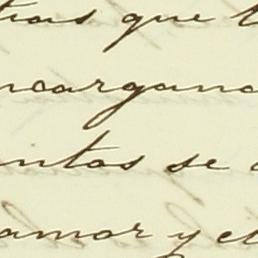 que
ncargano
ntos se
amor y el